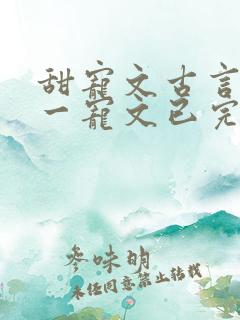 甜寵文古言
一寵文已完
參味明
未经同意禁止转载